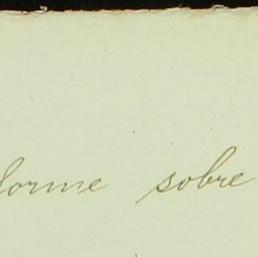 forme sobre